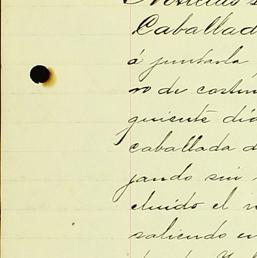 Caballad
á juntarla
ro de costum
guiente día
caballada d
jando sin
cluido el
saliendo en